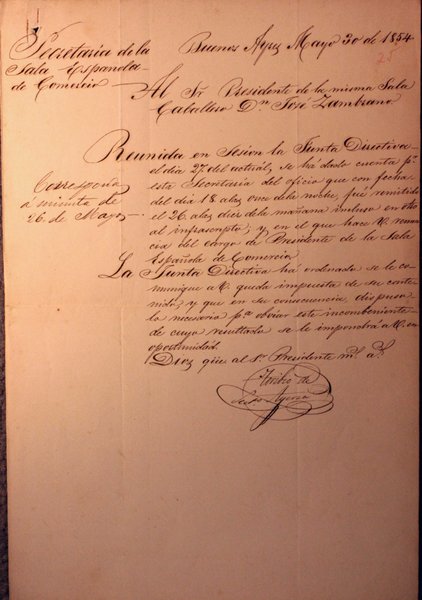 Secretaría de la
Sala Española
de Comercio
Buenos Ayres Mayo 30 de 1854
25
Al Sr. Presidente de la misma Sala
Caballero Dn. José Zambrano
Reunida en Sesion la Junta Directiva
el dia 27 del actual, se há dado cuenta pr.
esta Secretaria del oficio que con fecha
del dia 18 a las once de la noche, fué remitido
el 26 a las diez de la mañana incluso en otro
al infrascripto; y en el que hace V. renun
cia del cargo de Presidente de la Sala
Española de Comercio.
Corresponde
a minuta de
26 de Mayo
La Junta Directiva há ordenado se le co-
munique a V. queda impuesta de su conte-
nido; y que en su consecuencia, dispuso
lo necesario pa. obviar este incombeniente
de cuyo resultado se le impondrá a V. en
oportunidad.
Dios gûe al Sr. Presidente ms. as.
Toribio de